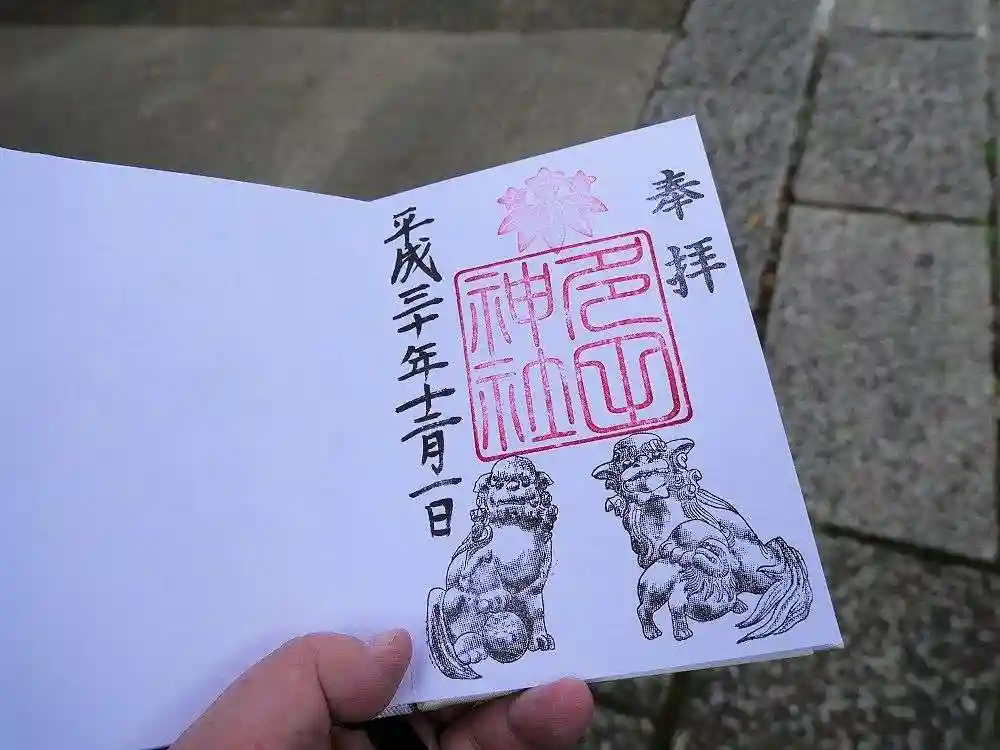 奉拝
神社
平成三十年十二月一日